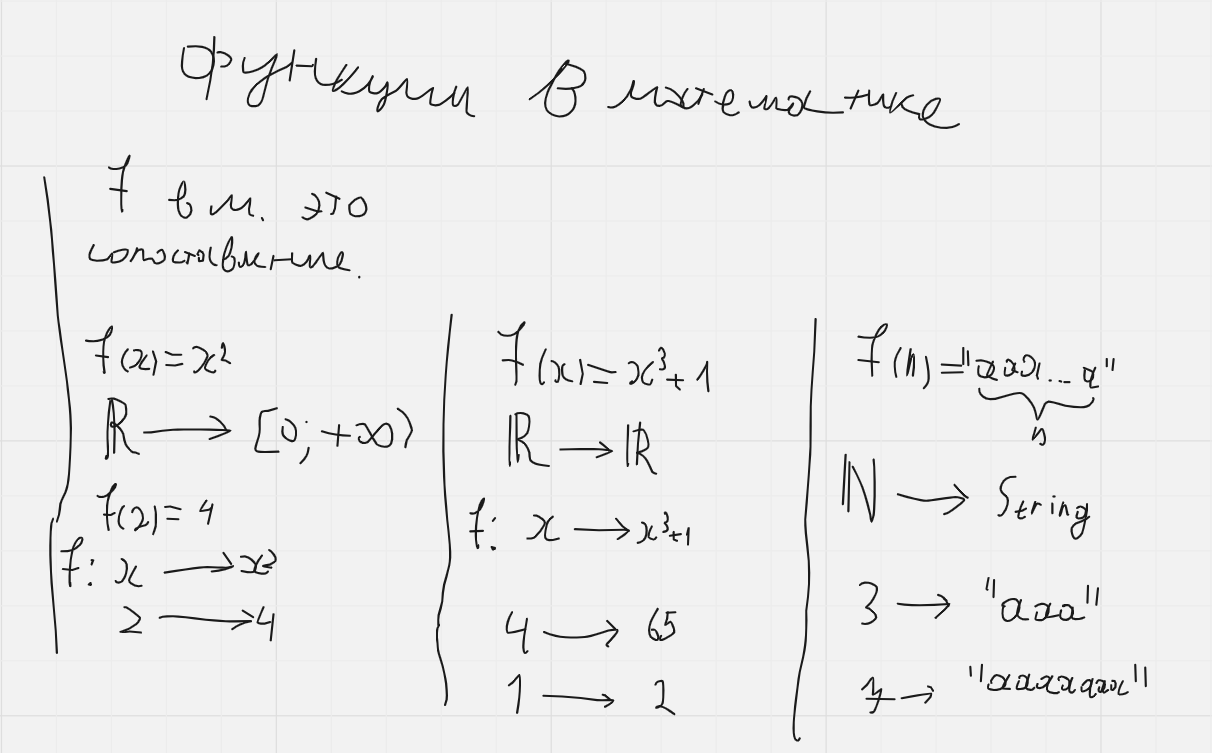 Функции в математике
f в м. это
сопоставление.
f(x)=x²
ℝ ⟶ [0; +∞)
f(2)=4
f: x ⟶ x²
2 ⟶ 4
f(x)=x³+1
ℝ ⟶ ℝ
f: x ⟶ x³+1
4 ⟶ 65
1 ⟶ 2
f(n)="aaa...a"
n
ℕ ⟶ String
3 ⟶ "aaa"
7 ⟶ "aaaaaaa"